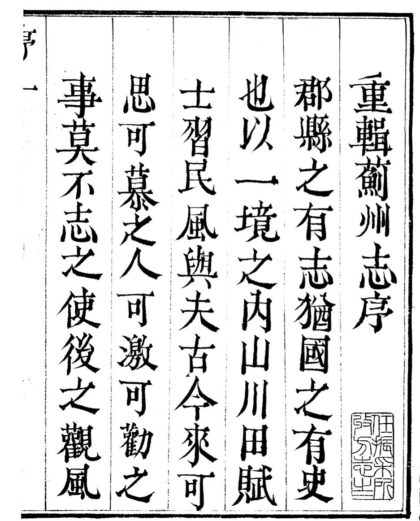 重輯薊州志序
郡縣之有志猶國之有史
也以一境之内山川田賦
士習民風與夫古今來可
思可慕之人可激可勸之
事莫不志之使後之觀風
序
一
任振采所
收方志之一